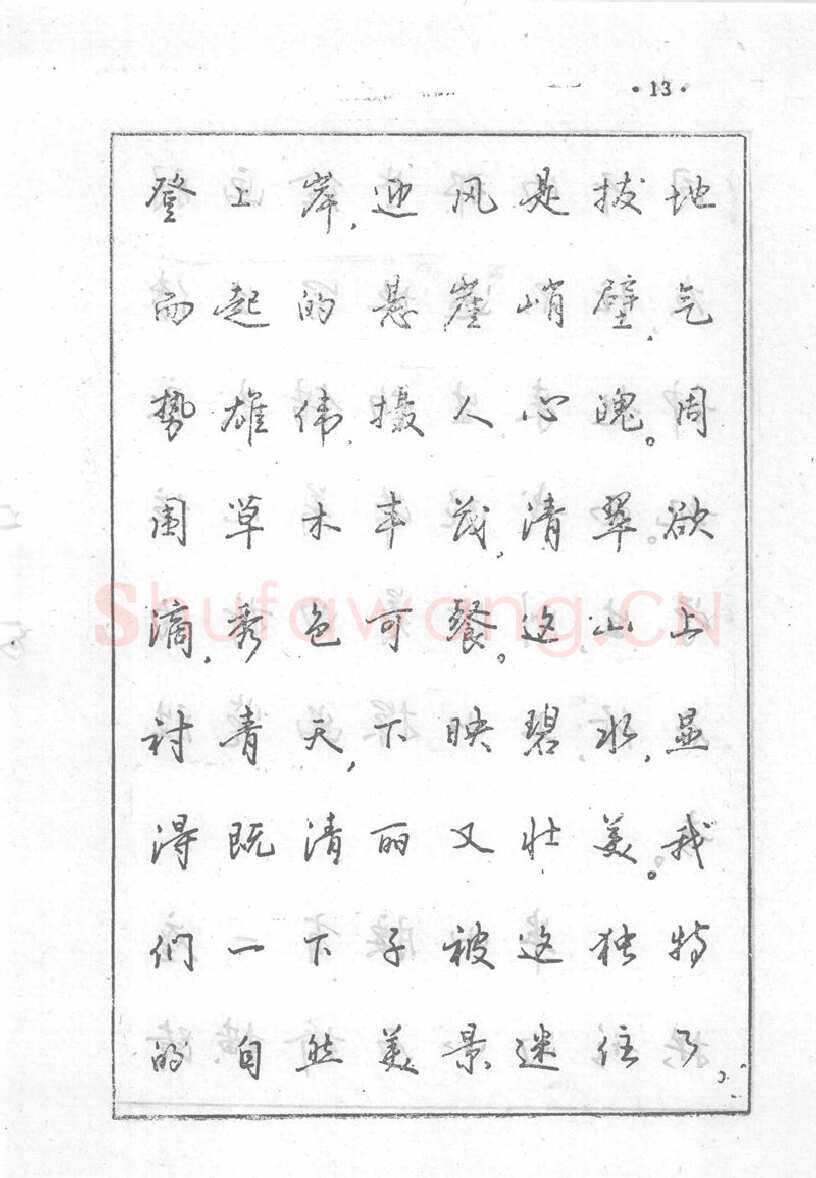 ·13·
登上岸,迎风是拔地
而起的悬崖峭壁,气
势雄伟,摄人心魄。周
围草木丰茂,清翠。欲
滴,秀色可餐。这山上
讨青天,下映碧水,显
得既清丽又壮美。我
们一下子被这独特
的自然美景迷住了,
Shufawang.CN